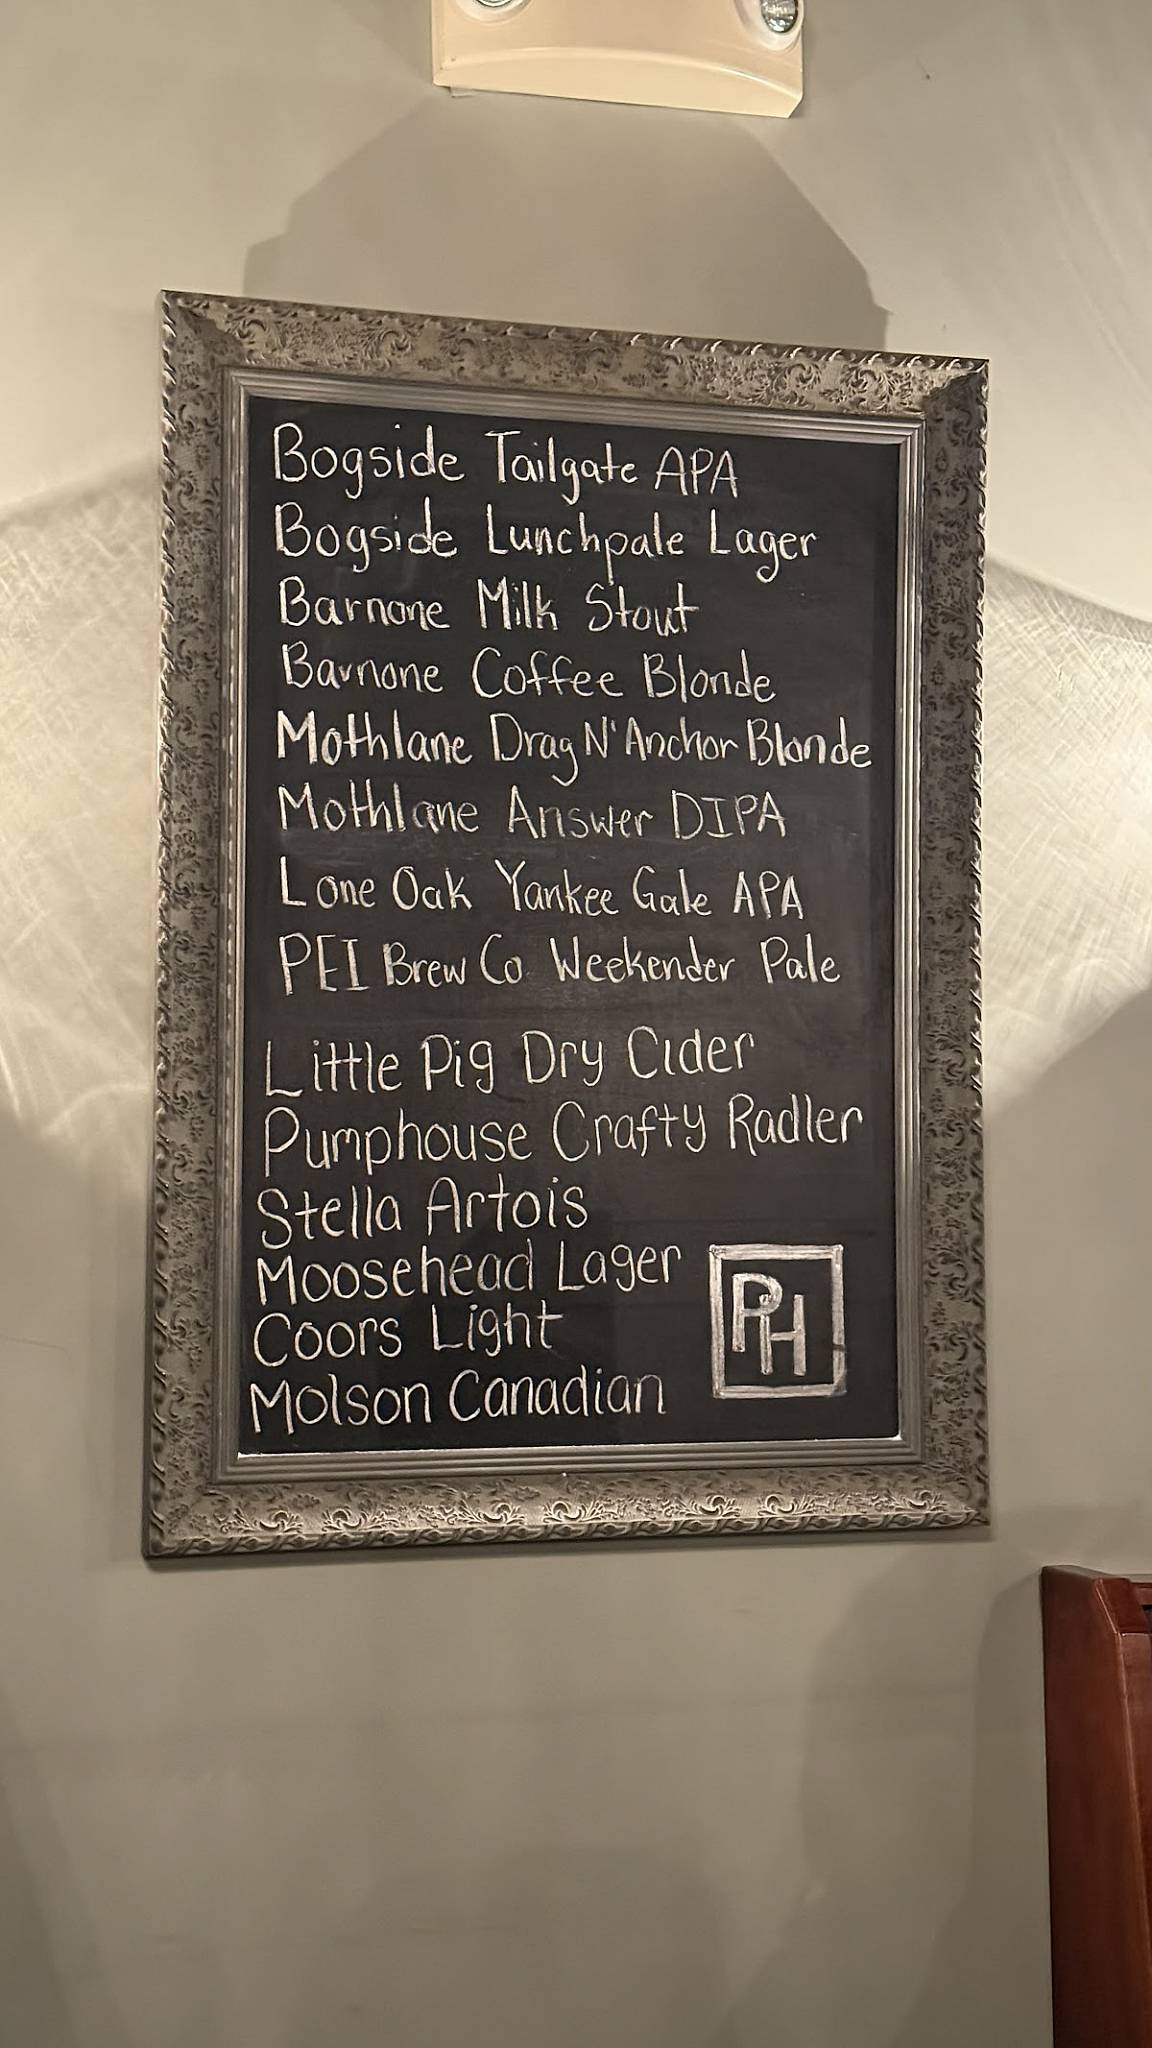 Bogside Tailgate APA
Bogside Lunchpale Lager
Barnone Milk Stout
Barnone Coffee Blonde
Mothlane Drag N' Anchor Blonde
Mothlane Answer DIPA
Lone Oak Yankee Gale APA
PEI Brew Co Weekender Pale
Little Pig Dry Cider
Pumphouse Crafty Radler
Stella Artois
Moosehead Lager
Coors Light
Molson Canadian
PH